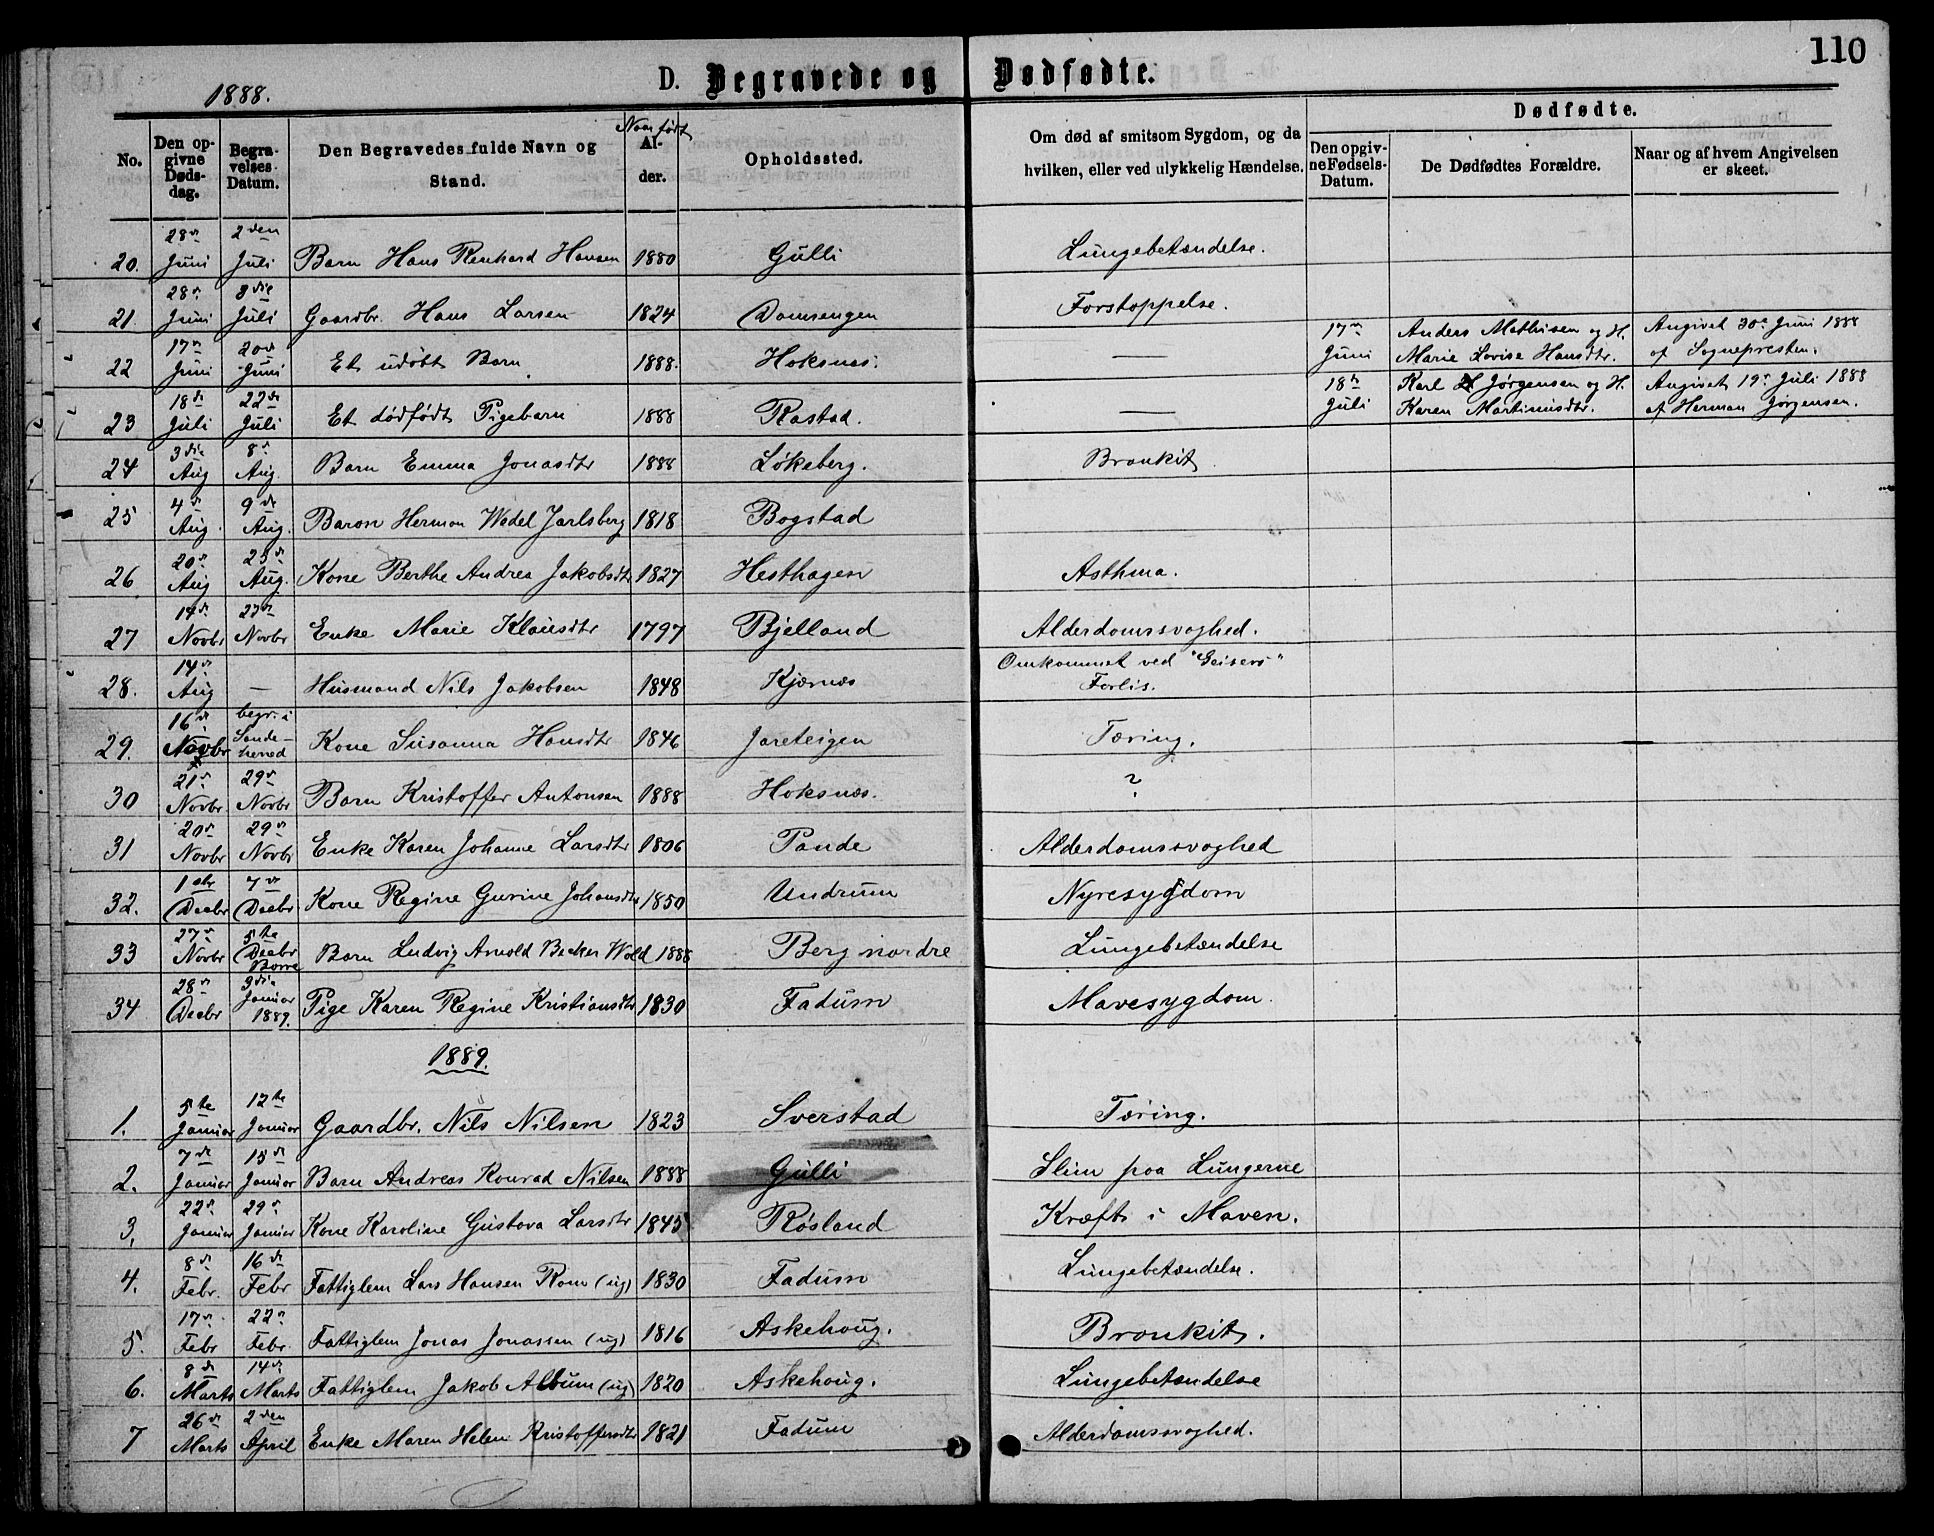 110
1888.
D. Begravede og Dødfødte.
No.
Den opgivne Dødsdag.
Begravelses Datum.
Den Begravedes fulde Navn og Stand.
Naar født
Alder.
Opholdssted.
Om død af smitsom Sygdom, og da hvilken, eller ved ulykkelig Hændelse.
Dødfødte.
Den opgivne Fødsels-Datum.
De Dødfødtes Forældre.
Naar og af hvem Angivelsen er skeet.
20. 28de Juni 2den Juli Barn Hans Renhard Hansen 1880 Gulli Lungebetændelse.
21. 28de Juni 3die Juli Gaardbr. Hans Larsen 1824 Damsengen Forstoppelse.
22 17de Juni 20de Juni Et udøbt Barn 1888. Hoksnæs. — 17de Juni Anders Mathisen og H. Marie Lovise Hansdtr. Angivet 30te Juni 1888 af Sognepresten.
23 18de Juli 22de Juli Et dødfødt Pigebarn 1888 Rastad. — 18de Juli Karl Jørgensen og H. Karen Martinusdtr. Angivet 19de Juli 1888 af Herman Jørgensen.
24 3die Aug 8de Aug. Barn Emma Jonasdtr 1888 Løkeberg. Bronkit
25 4de Aug. 9de Aug. Baron Herman Wedel Jarlsberg 1818 Bogstad
26. 20de Aug 25de Aug. Kone Berthe Andrea Jakobsdtr 1827 Hesthagen Asthma.
27 14de Novbr 22de Novbr Enke Marie Klausdtr 1797 Bjelland Alderdomssvaghed.
28. 14de Aug — Husmand Nils Jakobsen 1848 Kjærnæs Omkommet ved "Geisers" Forlis.
29. 16de Novbr begr. i Sandeherred Kone Susanna Hansdtr 1846 Jareteigen Tæring.
30 21de Novbr 29de Novbr Barn Kristoffer Antonsen 1888 Hoksnæs. ?
31 20de Novbr 29de Novbr Enke Karen Johanne Larsdtr 1806 Pande Alderdomssvaghed
32. 1ste Decbr 7de Decbr Kone Regine Gurine Johansdtr 1850 Undrum Nyresygdom
33 27de Novbr 5te Decbr Borre Barn Ludvig Arnold Becker Wold 1888 Berg nordre Lungebetændelse
34 28de Decbr 3die Januar 1889. Pige Karen Regine Kristiansdtr 1830 Fadum Mavesygdom.
1889.
1. 5te Januar 12te Januar Gaardbr. Nils Nilsen 1823 Sverstad Tæring.
2. 7de Januar 15de Januar Barn Andreas Konrad Nilsen 1888 Gulli Slim paa Lungerne
3. 22de Januar 29de Januar Kone Karoline Gustava Larsdtr 1845 Røsland Kræft i Maven.
4. 8de Febr. 16de Febr Fattiglem Lars Hansen Rom (ug) 1830 Fadum Lungebetændelse.
5. 17de Febr 22de Febr. Fattiglem Jonas Jonassen (ug) 1816 Askehoug. Bronkit.
6. 8de Marts 14de Marts Fattiglem Jakob Album (ug) 1820 Askehoug. Lungebetændelse
7 26de Marts 2den April Enke Maren Helen Kristoffersdtr 1821 Fadum Alderdomssvaghed.